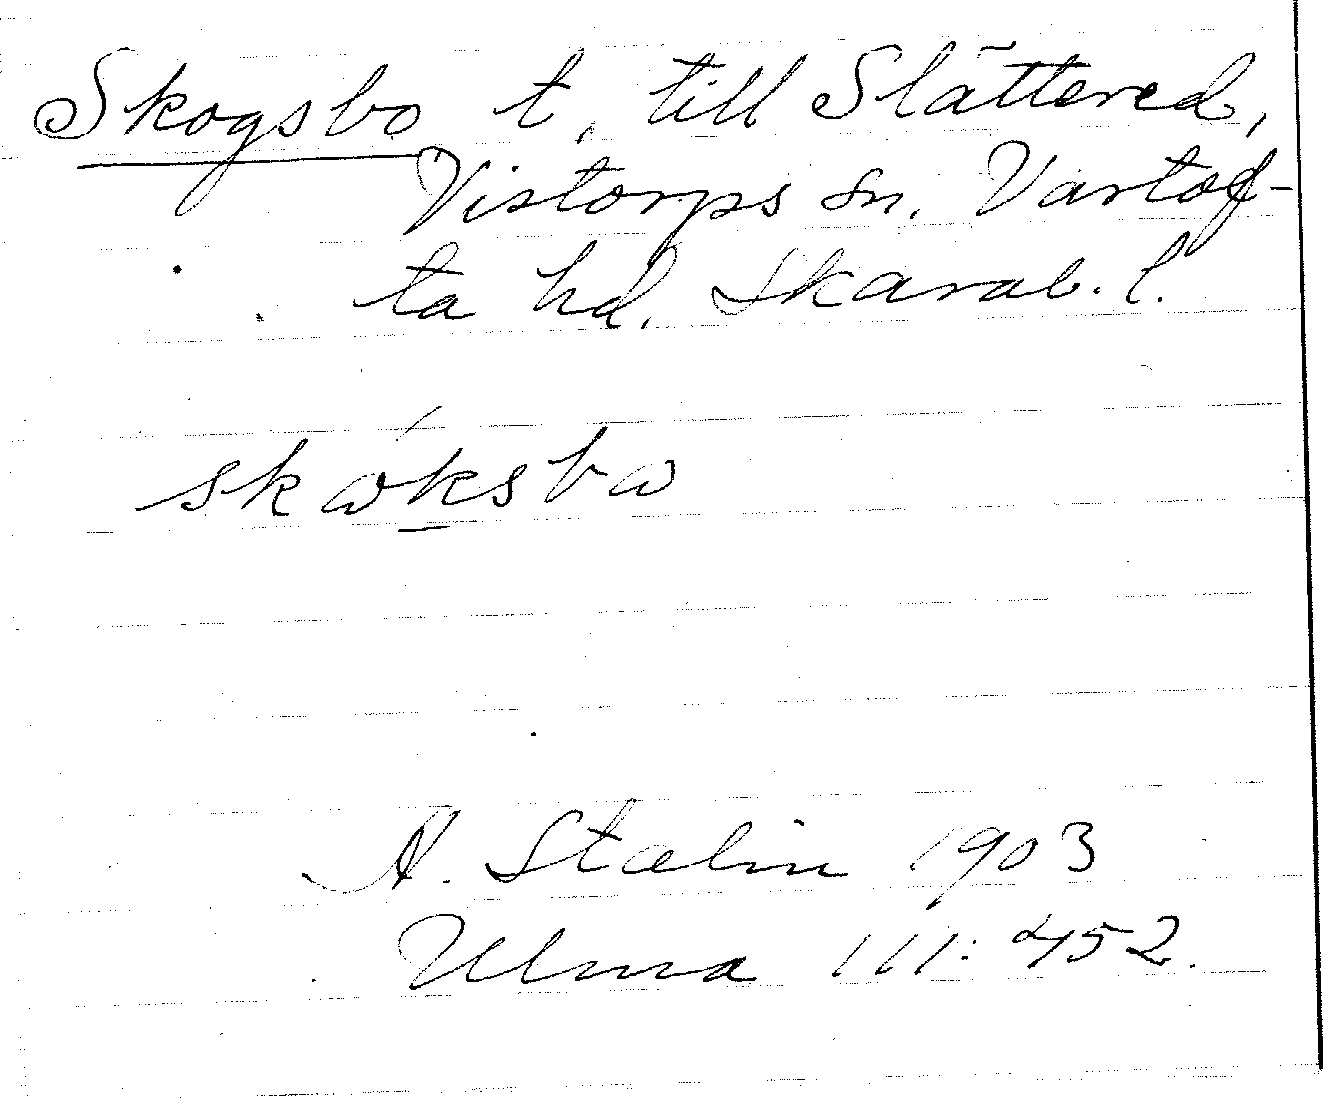 Skogsbo t. till Slättered,
Vistorps sn. Vartof-
ta hd. Skarab. l.
skɷ́ksbɷ
A. Stalin 1903
Ulma 111:452.